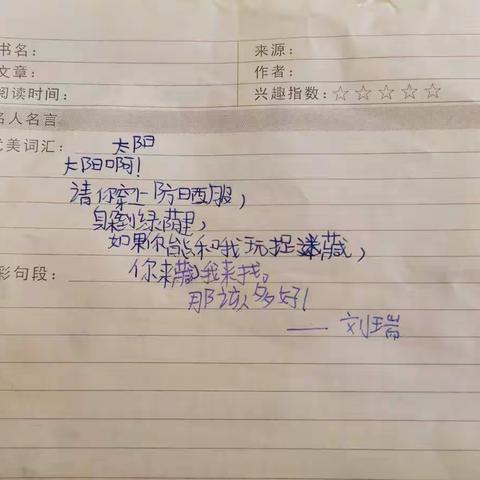 书名：
来源：
文章：
作者：
阅读时间：
兴趣指数：☆☆☆☆☆
名人名言
优美词汇：
太阳
太阳啊！
请你穿上防晒服，
躲到绿荫里，
如果你能和我玩捉迷藏，
精彩句段：
你来藏我来找。
那该多好！
——刘瑞